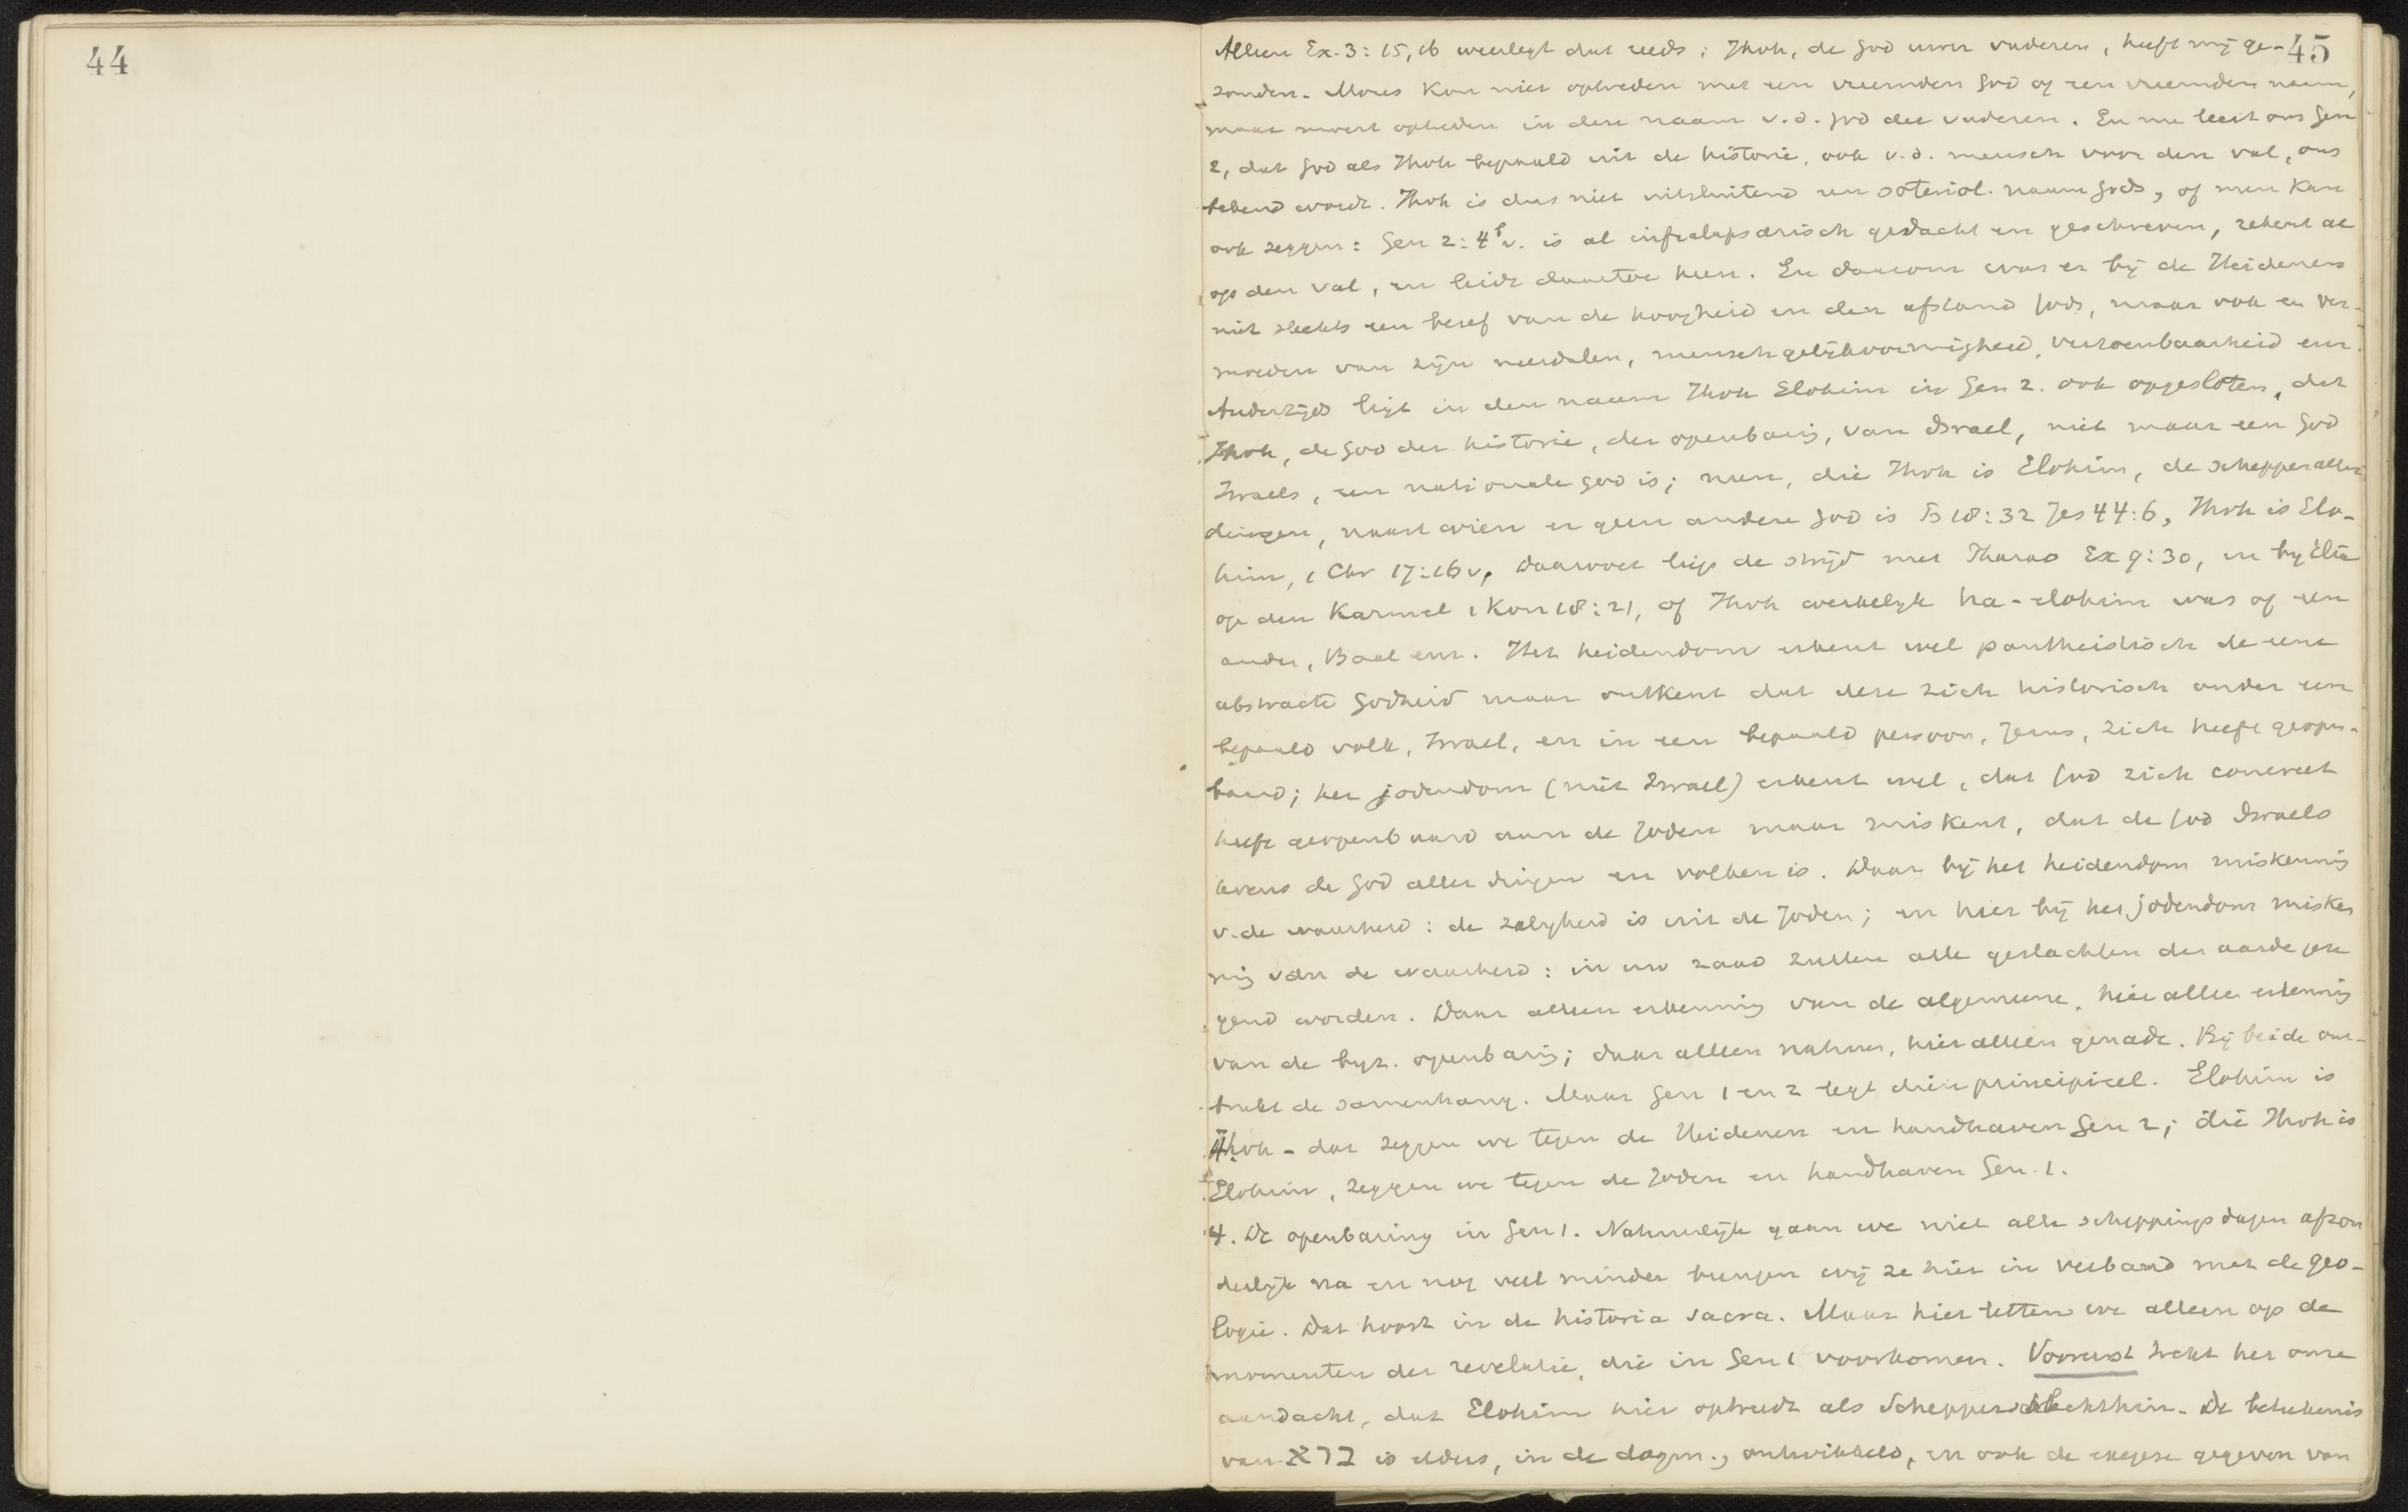 44
45
Alleen Ex. 3:15,16 weerlegt dat reeds; Jhvh, de God uwer vaderen, heeft mij ge-
zonden. Mozes kon niet optreden met een vreemden God of een vreemden naam,
maar moest optreden in den naam v.d. God der vaderen. En nu leert ons Gen
2, dat God als Jhvh bepaald uit de historie, ook v.d. mensch voor den val, ons
bekend wordt. Jhvh is dus niet uitsluitend een soteriol. naam Gods, of men kan
ook zeggen: Gen 2:4b v. is al infralapsarisch gedacht en geschreven, rekent al
op den val, en leidt daartoe heen. En daarom was er bij de Heidenen
niet slechts een besef van de hoogheid en den afstand Gods, maar ook een ver-
moeden van zijn neerdalen, menschgelijkvormigheid, verzoenbaarheid enz.
Anderzijds ligt in den naam Jhvh Elohim in Gen 2. ook opgesloten, dat
Jhvh, de God der historie, der openbaring, van Israel, niet maar een God
Israels, een nationale God is; neen, die Jhvh is Elohim, de schepper aller
dingen, naast wien er geen andere God is Ps 18:32 Jes 44:6, Jhvh is Elo-
him, 1 Chr 17:16v, daarover liep de strijd met Pharao Ex 9:30, en bij Elia
op den Karmel 1 Kon 18:21, of Jhvh werkelijk ha-elohim was of een
ander, Baal enz. Het heidendom erkent wel pantheistisch de eene
abstracte Godheid maar ontkent dat deze zich historisch onder een
bepaald volk, Israel, en in een bepaald persoon, Jezus, zich heeft geopen-
baard; het jodendom (niet Israel) erkent wel, dat God zich concreet
heeft geopenbaard aan de Joden maar miskent, dat de God Israels
tevens de God aller dingen en volken is. Daar bij het heidendom miskenning
v. de waarheid: de zaligheid is uit de Joden; en hier bij het jodendom misken
ning van de waarheid: in uw zaad zullen alle geslachten der aarde geze
gend worden. Daar alleen erkenning van de algemeene, hier alleen erkenning
van de byz. openbaring; daar alleen natuur, hier alleen genade. Bij beide ont-
breekt de samenhang. Maar Gen 1 en 2 legt dien principieel. Elohim is
Jhvh - dat zeggen we tegen de Heidenen en handhaven Gen 2; die Jhvh is
Elohim, zeggen we tegen de Joden en handhaven Gen. 1.
4. De openbaring in Gen 1. Natuurlijk gaan we niet alle scheppingsdagen afzon
derlijk na en nog veel minder brengen wij ze hier in verband met de geo-
logie. Dat hoort in de historia sacra. Maar hier letten we alleen op de
momenten der revelatie, die in Gen 1 voorkomen. Vooreerst trekt het onze
aandacht, dat Elohim hier optreedt als Schepper schlechthin. De beteekenis
van ברא is elders, in de dogm., ontwikkeld, en ook de exegese gegeven van